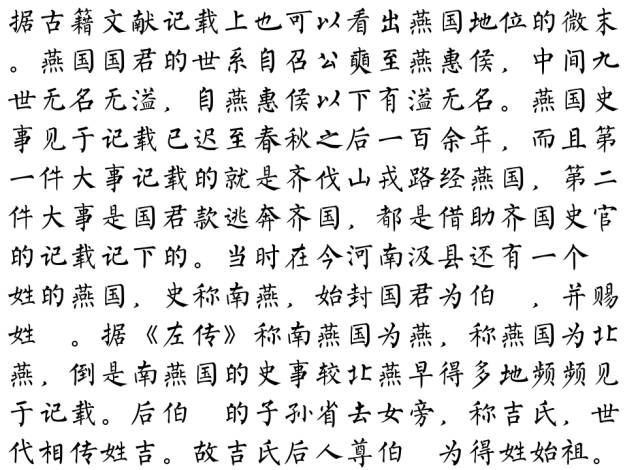 据古籍文献记载上也可以看出燕国地位的微末
。燕国国君的世系自召公奭至燕惠侯，中间九
世无名无溢，自燕惠侯以下有溢无名。燕国史
事见于记载已迟至春秋之后一百余年，而且第
一件大事记载的就是齐伐山戎路经燕国，第二
件大事是国君款逃奔齐国，都是借助齐国史官
的记载记下的。当时在今河南汲县还有一个
姓的燕国，史称南燕，始封国君为伯　，并赐
姓　。据《左传》称南燕国为燕，称燕国为北
燕，倒是南燕国的史事较北燕早得多地频频见
于记载。后伯　的子孙省去女旁，称吉氏，世
代相传姓吉。故吉氏后人尊伯　为得姓始祖。